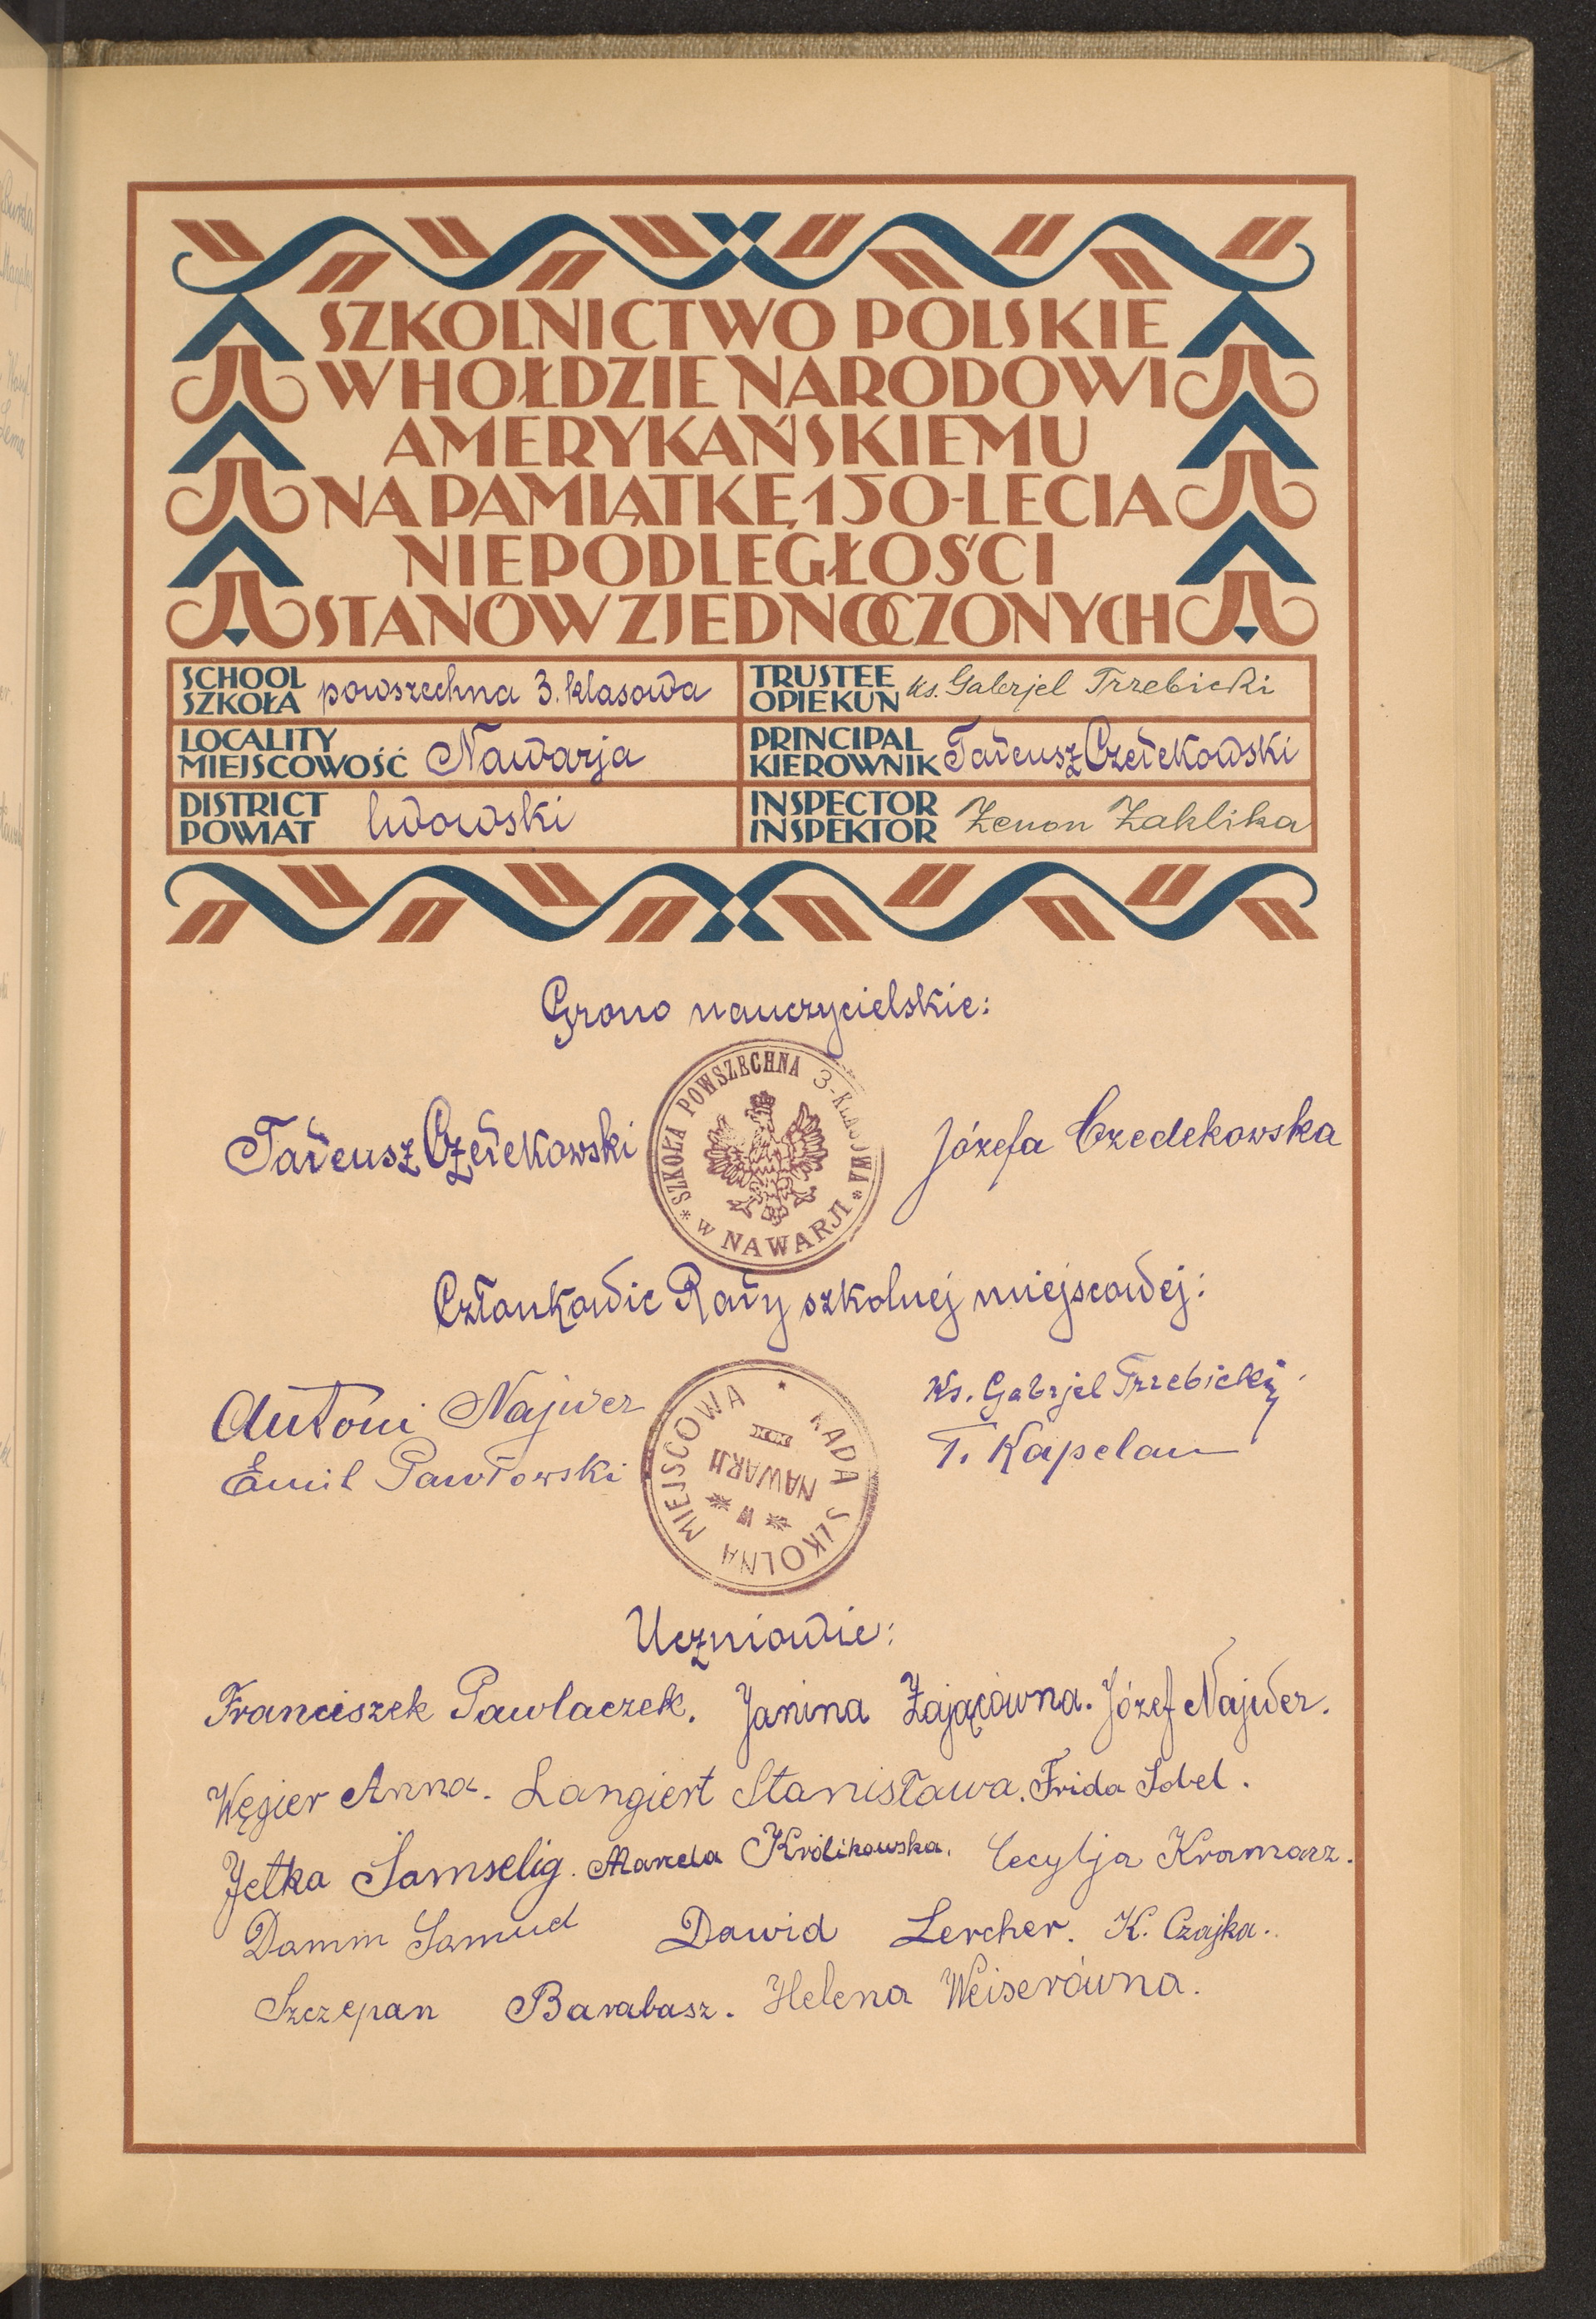 SZKOLNICTWO POLSKIE
W HOŁDZIE NARODOWI
AMERYKAŃSKIEMU
NA PAMIĄTKĘ 150-LECIA
NIEPODLEGŁOŚCI
STANÓW ZJEDNOCZONYCH
SCHOOL
SZKOŁA powszechna 3. klasowa
TRUSTEE
OPIEKUN ks. Gabrjel Trzebicki
LOCALITY
MIEJSCOWOŚĆ Nawarja
PRINCIPAL
KIEROWNIK Tadeusz Czedekowski
DISTRICT
POWIAT lwowski
INSPECTOR
INSPEKTOR Zenon Zaklika
Grono nauczycielskie:
* SZKOŁA POWSZECHNA 3-KLASOWA *
W NAWARJI
Tadeusz Czedekowski Józefa Czedekowska
Członkowie Rady szkolnej miejscowej:
Antoni Najwer ks. Gabrjel Trzebicki
Emil Pawłowski T. Kapelan
RADA SZKOLNA MIEJSCOWA
W
NAWARJI
Uczniowie:
Franciszek Pawlaczek. Janina Zającówna. Józef Najwer.
Węgier Anna. Langiert Stanisława. Frida Sobel.
Jetka Samselig. Marcela Królikowska. Cecylja Kramarz.
Damm Samuel Dawid Lercher. K. Czajka.
Szczepan Barabasz. Helena Weiserówna.